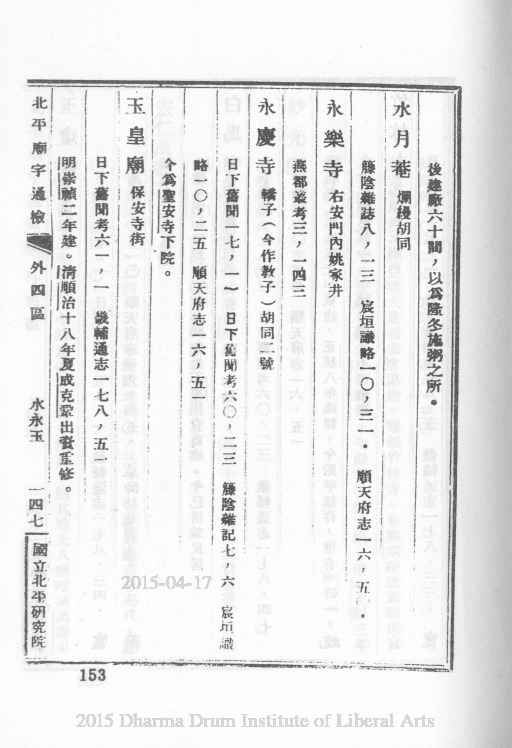 後建廠六十間，以爲隆冬施粥之所。
水月菴 爛縵胡同
籐陰雜誌八，一三 宸垣識略一〇，三一． 順天府志一六，五一．
永樂寺 右安門內姚家井
燕都叢考三，一四三
永慶寺 轎子（今作教子）胡同二號
日下舊聞一七，一一 日下舊聞考六〇，二三 籐陰雜記七，六 宸垣識
略一〇，二五 順天府志一六，五一
今爲聖安寺下院。
玉皇廟 保安寺街
日下舊聞考六一，一 畿輔通志一七八，五一
明崇禎二年建。清順治十八年夏成克鞏出貲重修。
北平廟宇通檢 外四區 水永玉 一四七 國立北平研究院
153
2015-04-17
2015 Dharma Drum Institute of Liberal Arts